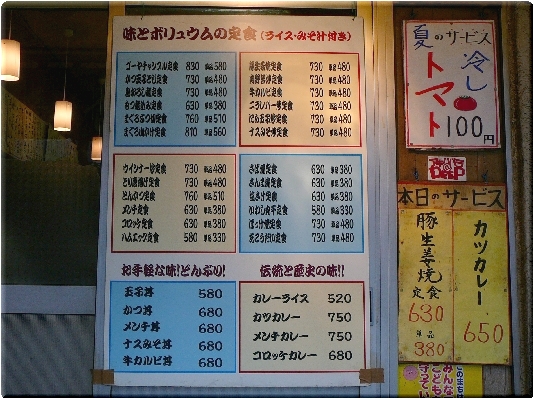 味とボリュウムの定食(ライス・みそ汁付き)
ゴーヤチャンプル定食 830 単品580
かつ玉子とじ定食 730 単品480
鳥おろし煮定食 730 単品480
もつ煮込み定食 630 単品380
まぐろぶつ切定食 760 単品510
まぐろぬけ定食 810 単品560
730 単品480
肉野菜炒定食 730 単品480
牛カルビ定食 730 単品480
ニラレバー炒定食 730 単品480
にら玉子炒定食 730 単品480
ナスみそ炒定食 730 単品480
ウインナー炒定食 730 単品480
とり唐揚げ定食 730 単品480
とんかつ定食 760 単品510
メンチ定食 630 単品380
コロッケ定食 630 単品380
ハムエッグ定食 580 単品330
さば焼定食 630 単品380
さんま焼定食 630 単品380
塩さけ定食 630 単品380
いわし丸干定食 580 単品330
ほっけ焼定食 730 単品480
赤こうおり定食 730 単品480
お手軽な味!どんぶり!
玉子丼 580
かつ丼 680
メンチ丼 680
ナスみそ丼 680
牛カルビ丼 680
伝統と歴史の味!!
カレーライス 520
カツカレー 750
メンチカレー 750
コロッケカレー 680
夏のサービス
冷し
トマト
100円
本日のサービス
豚生姜焼
定食
630
単品
380
カツカレー
650
みんな
こども
守って